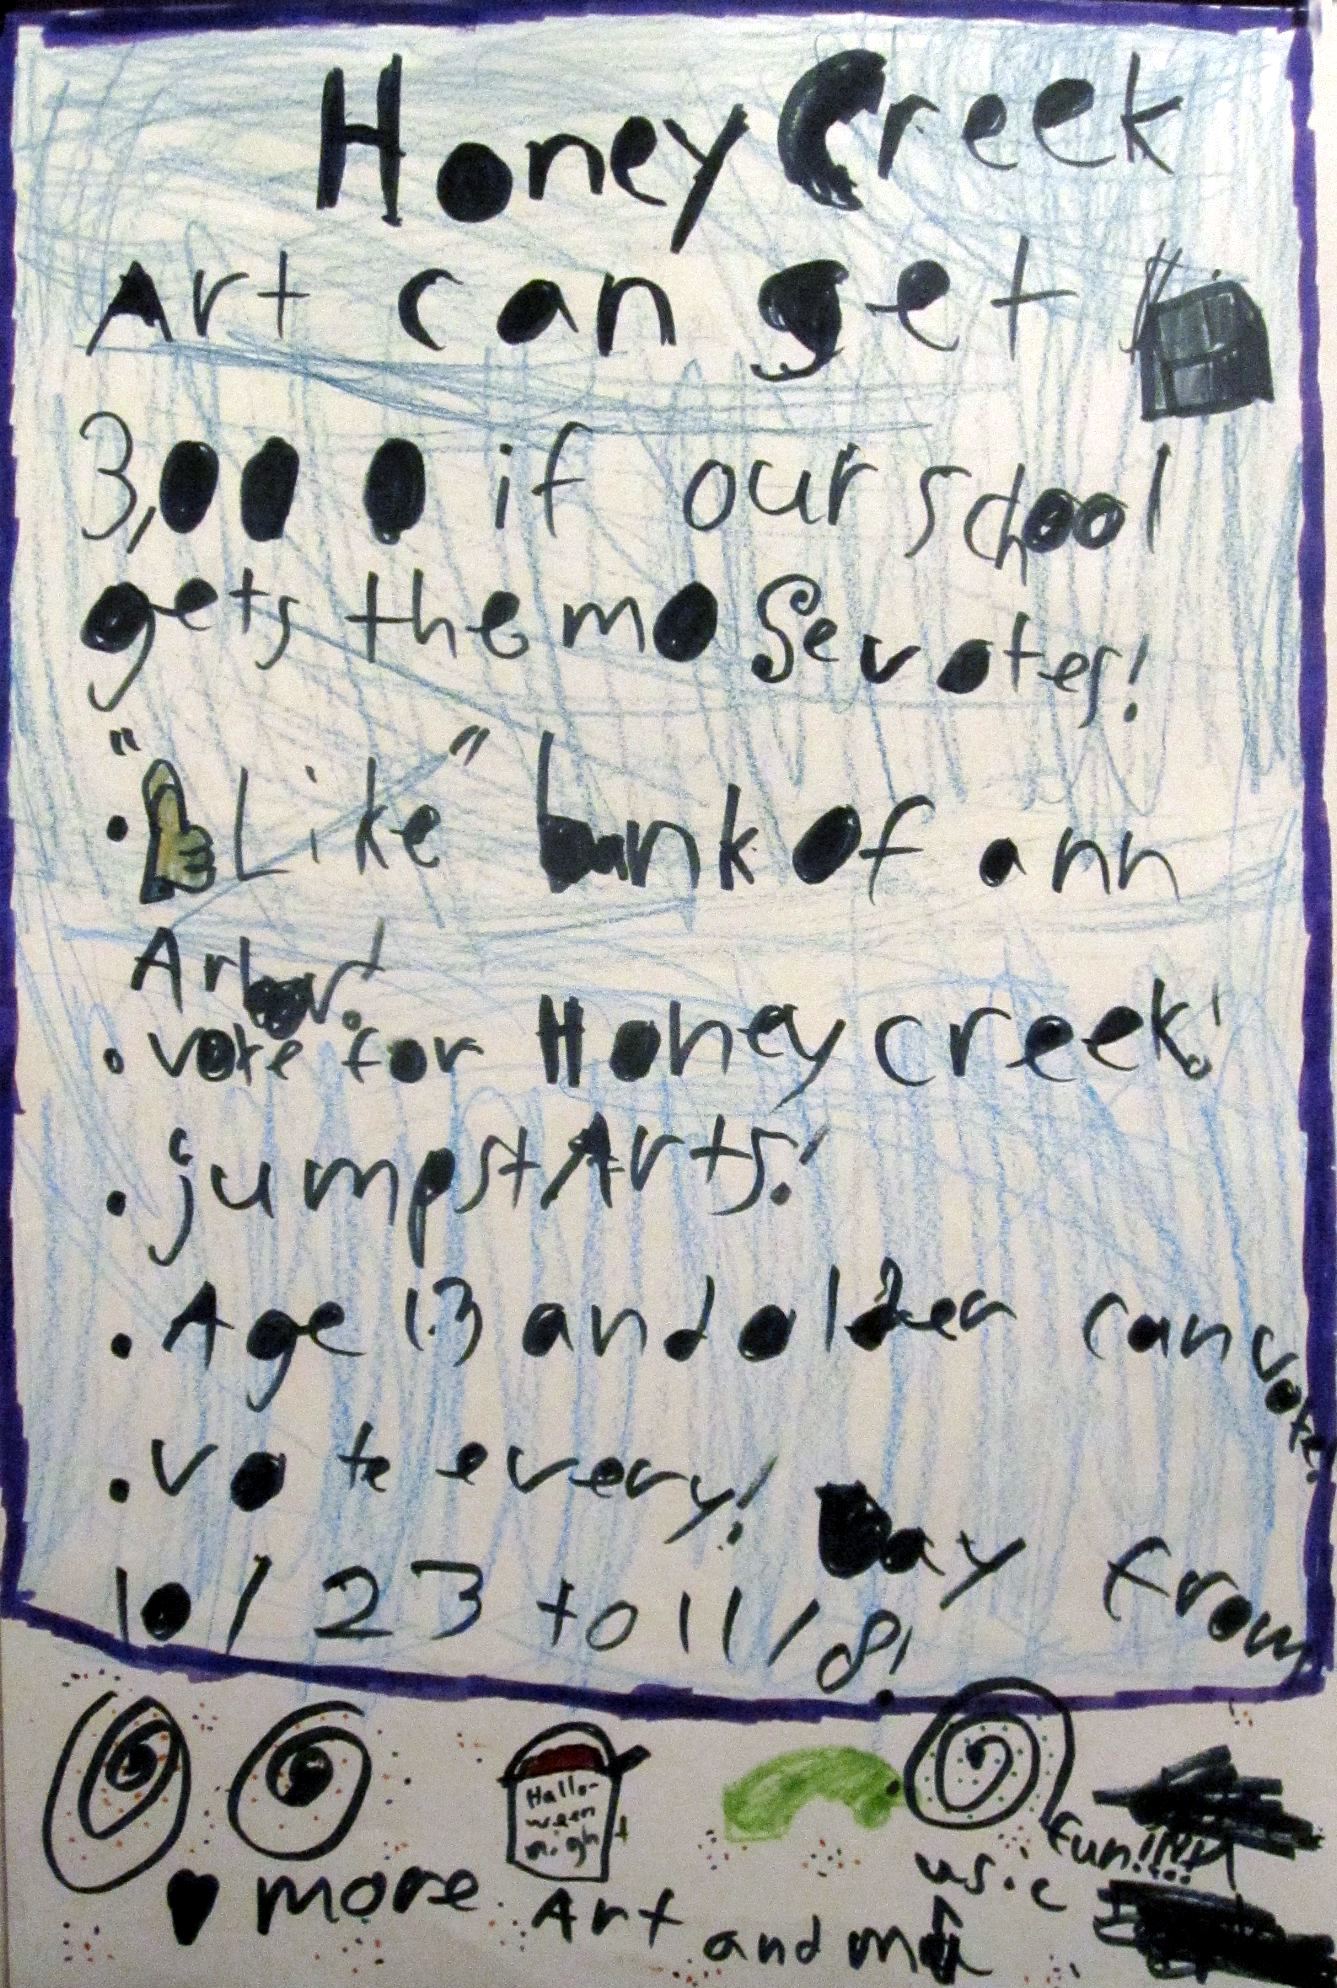 Honey Creek
Art can get
3,000 if our school
gets the mose votes!
• "Like" bank of ann
Arbor!
• vote for Honey creek!
• jumpstArts!
• Age 13 and older can vote!
• vote every! Day from
10/23 to 11/8!
Hallo-
ween
night
fun!!!!
♥ more Art and music